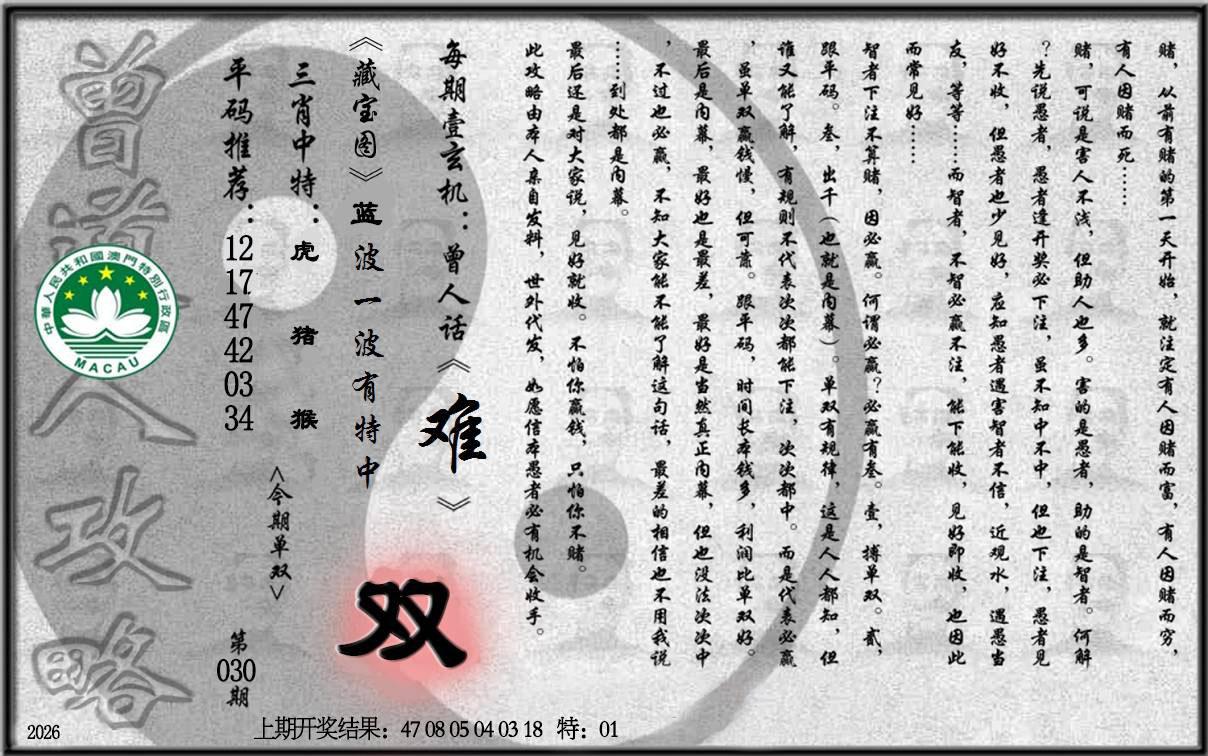 赌，从前有赌的第一天开始，就注定有人因赌而富，有人因赌而穷，
有人因赌而死……
赌，可说是害人不浅，但助人也多。害的是愚者，助的是智者。何解
？先说愚者，愚者逢开奖必下注，虽不知中不中，但也下注，愚者见
好不收，但愚者也少见好，应知愚者遇害智者不信，近观水，遇愚当
友，等等……而智者，不智必赢不注，能下能收，见好即收，也因此
而常见好……
智者下注不算赌，因必赢。何谓必赢？必赢有叁。壹，搏单双。贰，
跟平码。叁，出千（也就是内幕）。单双有规律，这是人人都知，但
谁又能了解，有规则不代表次次都能下注，次次都中。而是代表必赢
，虽单双赢钱慢，但可靠。跟平码，时间长本钱多，利润比单双好。
最后是内幕，最好也是最差，最好是当然真正内幕，但也没法次次中
，不过也必赢，不知大家能不能了解这句话，最差的相信也不用我说
……到处都是内幕。
最后还是对大家说，见好就收。不怕你赢钱，只怕你不赌。
此攻略由本人亲自发料，世外代发，如愿信本愚者必有机会收手。
每期壹玄机：曾人话《难》
《藏宝图》蓝波一波有特中
双
三肖中特：虎 猪 猴
<今期单双>
平码推荐：12 17 47 42 03 34
第030期
曾道人攻略
中華人民共和國澳門特別行政區
MACAU
2026
上期开奖结果：47 08 05 04 03 18 特：01